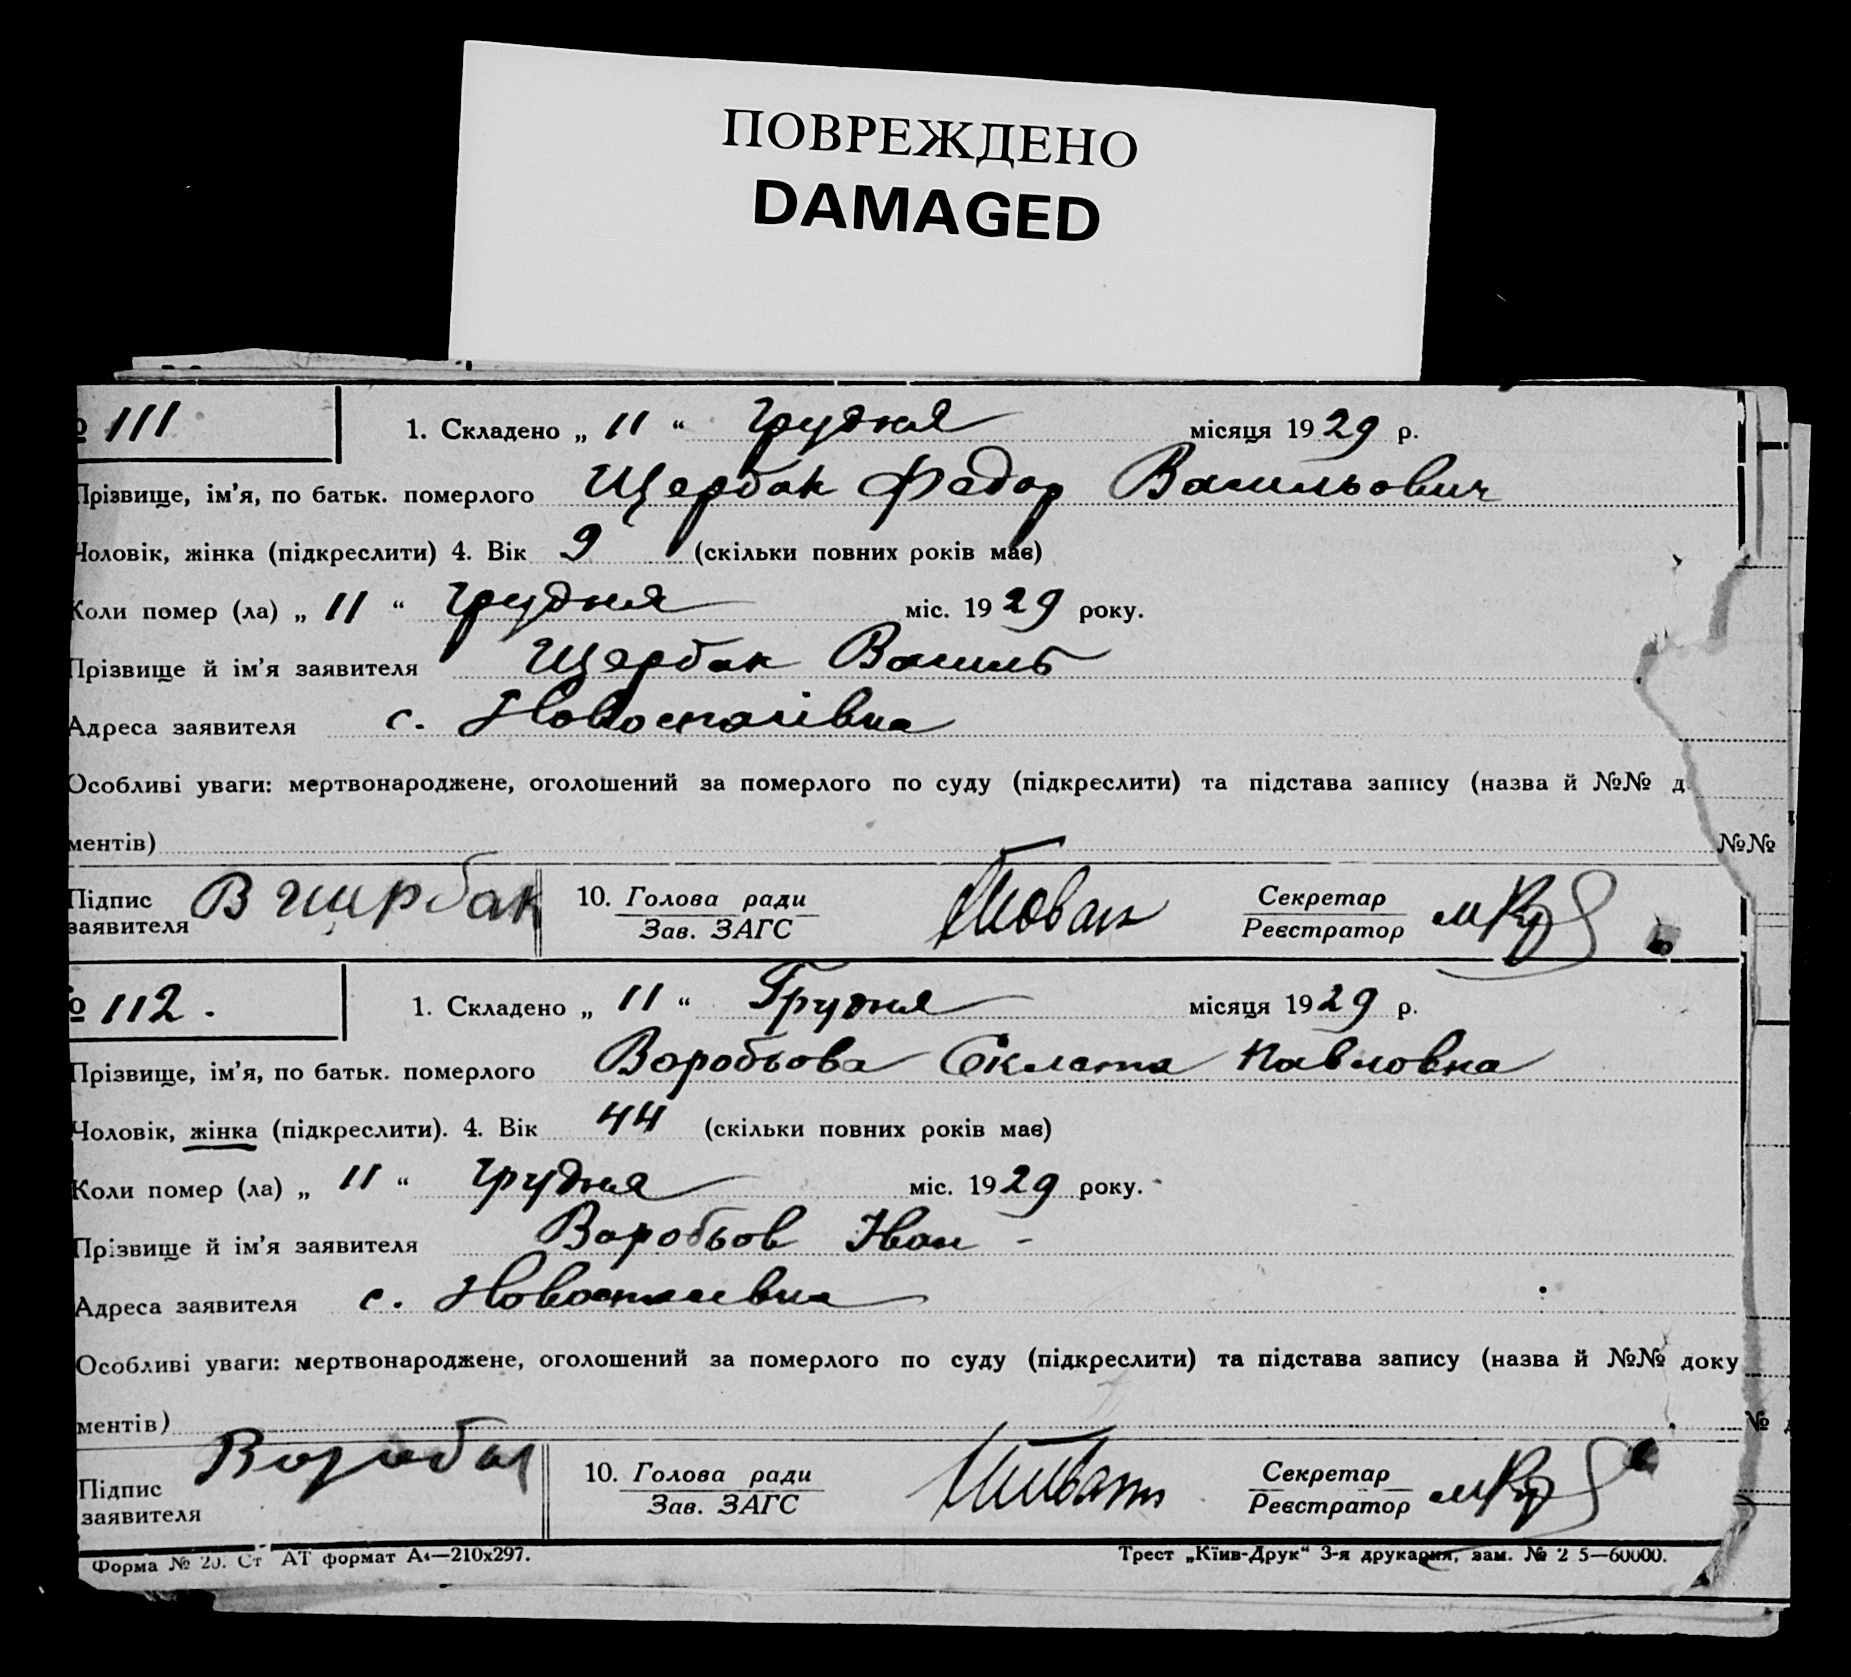 ПОВРЕЖДЕНО
DAMAGED
№ 111
1. Складено „ 11 “ грудня місяця 1929 р.
Прізвище, ім'я, по батьк. померлого Щербак Федор Васильович
Чоловік, жінка (підкреслити) 4. Вік 9 (скільки повних років має)
Коли помер (ла) „ 11 “ грудня міс. 1929 року.
Прізвище й ім'я заявителя Щербак Василь
Адреса заявителя с.
Особливі уваги: мертвонароджене, оголошений за померлого по суду (підкреслити) та підстава запису (назва й №№ д
ментів) №№
Підпис заявителя В Щирбак 10. Голова ради Зав. ЗАГС Секретар Реєстратор
№ 112.
1. Складено „ 11 “ Грудня місяця 1929 р.
Прізвище, ім'я, по батьк. померлого Воробьова Павловна
Чоловік, жінка (підкреслити). 4. Вік 44 (скільки повних років має)
Коли помер (ла) „ 11 “ грудня міс. 1929 року.
Прізвище й ім'я заявителя Воробьов Іван -
Адреса заявителя с.
Особливі уваги: мертвонароджене, оголошений за померлого по суду (підкреслити) та підстава запису (назва й №№ доку
ментів) №
Підпис заявителя 10. Голова ради Зав. ЗАГС Секретар Реєстратор
Форма № 20. Ст АТ формат А4—210х297.
Трест „Київ-Друк“ 3-я друкарня, зам. № 2 5—60000.